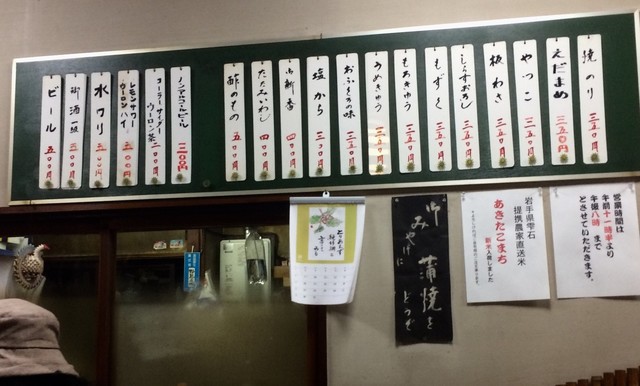 焼のり 三五〇円
えだまめ 三五〇円
やっこ 三五〇円
板わさ 三五〇円
しらすおろし 三五〇円
もずく 三五〇円
もろきゅう 三五〇円
うめきゅう 三五〇円
おふくろの味 三五〇円
塩から 三〇〇円
お新香 四〇〇円
たたみいわし 四〇〇円
酢のもの 五〇〇円
ノンアルコールビール 三〇〇円
コーラ・サイダー
ウーロン茶 二〇〇円
レモンサワー
ウーロンハイ 五〇〇円
氷フリ 五〇〇円
御酒一級 五〇〇円
ビール 五〇〇円
営業時間は
午前十一時半より
午後八時まで
とさせていただきます。
岩手県雫石
提携農家直送米
あきたこまち
新米入荷しました
御みやげに
蒲焼を
どうぞ